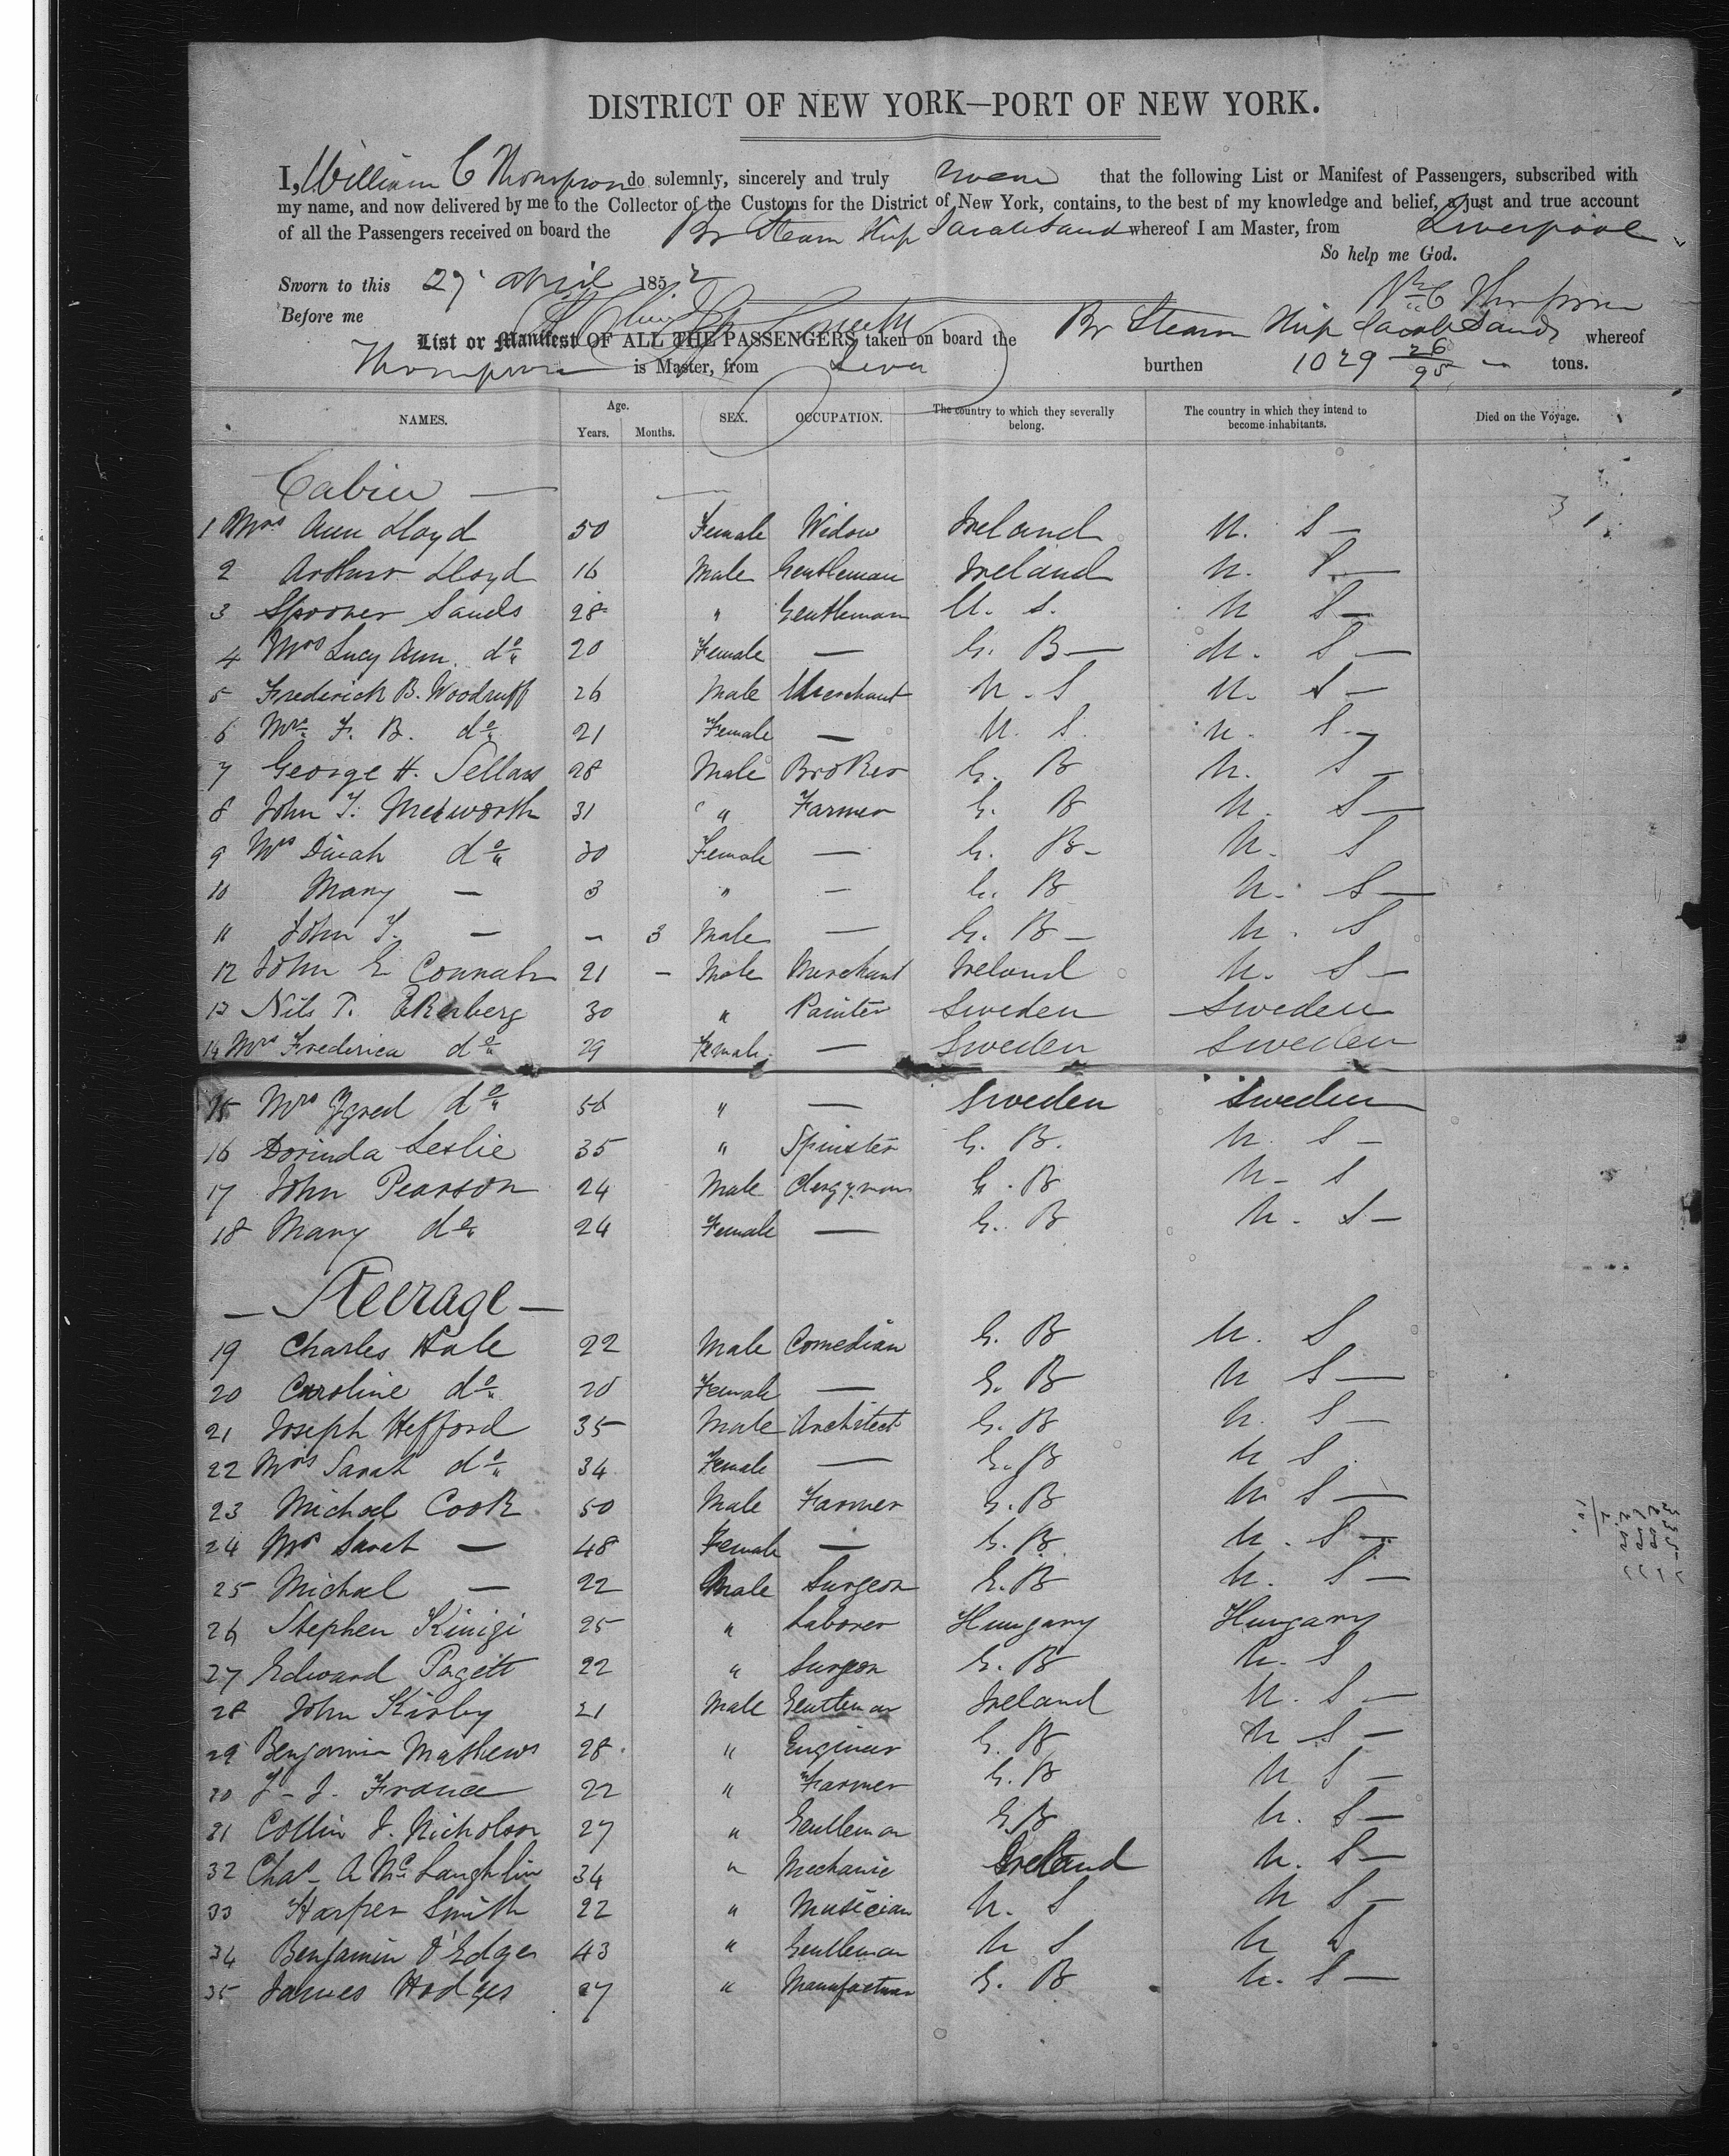 DISTRICT OF NEW YORK—PORT OF NEW YORK.
I, William C Thompson do solemnly, sincerely and truly swear that the following List or Manifest of Passengers, subscribed with
my name, and now delivered by me to the Collector of the Customs for the District of New York, contains, to the best of my knowledge and belief, a just and true account
of all the Passengers received on board the Br Steam Ship Sarah Sands whereof I am Master, from Liverpool
So help me God.
Sworn to this 27 April 1852
Wm C Thompson
Before me
List or Manifest OF ALL THE PASSENGERS taken on board the Br Steam Ship Sands whereof
Thompson is Master, from Liver burthen 1029 26/95 tons.
NAMES. Age. Years. Months. SEX. OCCUPATION. The country to which they severally belong. The country in which they intend to become inhabitants. Died on the Voyage.
Cabin —
1 Mrs Ann Lloyd 50 Female Widow Ireland U. S —
2 Arthur Lloyd 16 Male Gentleman Ireland U. S —
3 Spooner Sands 28 " Gentleman U. S. U S —
4 Mrs Lucy Ann do 20 Female — G. B — U. S —
5 Frederick B. Woodruff 26 Male Merchant U. S U. S —
6 Mrs F. B. do 21 Female — U. S. U. S. —
7 George H. Sellars 28 Male Broker G. B U. S —
8 John T. 31 " Farmer G. B U. S —
9 Mrs Dinah do 30 Female — G. B — U. S
10 Mary — 3 " — G. B U. S —
11 John T. — — 3 Male — G. B — U. S
12 John E Connah 21 — Male Merchant Ireland U. S —
13 Nils T. 30 " Painter Sweden Sweden
14 Mrs Frederica do 29 Female — Sweden Sweden
15 Mrs do 56 " — Sweden Sweden
16 Dorinda Leslie 35 " Spinster G. B. U. S —
17 John Pearson 24 Male Clergyman G. B U — S
18 Mary do 24 Female — G. B U. S —
— Steerage —
19 Charles Hale 22 Male Comedian G. B U. S
20 Caroline do 20 Female — G. B U S —
21 Joseph Hefford 35 Male Architect G. B U. S —
22 Mrs Sarah do 34 Female — G. B U S.
23 Michael Cook 50 Male Farmer G. B U S —
24 Mrs Sarah — 48 Female — G. B. U. S —
25 Michael — 22 Male Surgeon G. B U. S —
26 Stephen 25 " Laborer Hungary Hungary
27 Edward Pagett 22 " Surgeon G. B U. S
28 John Kirby 21 Male Gentleman Ireland U. S —
29 Benjamin Mathews 28 " Engineer G. B U S —
30 J. France 22 " Farmer G. B U S —
31 Collin J. Nicholson 27 " Gentleman G B U. S —
32 Chas A McLaughlin 34 " Mechanic Ireland U. S —
33 Harper Smith 22 " Musician U. S U S —
34 Benjamin D'Edger 43 " Gentleman U S U S
35 James Hodges 27 " Manufacturer G. B U. S —